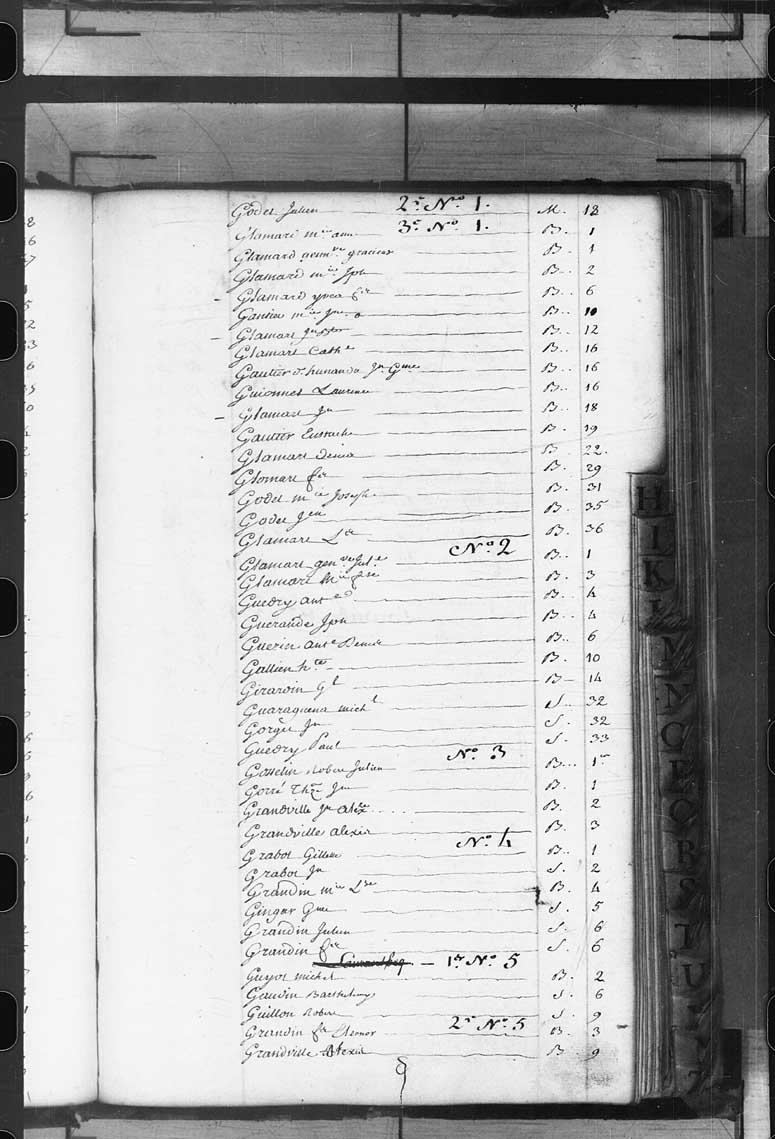 8
6
7
5
2
3
6
0
2ᵉ Nº 1.
Godet Julien M. 18
3ᵉ Nº 1.
Glamard mⁱᵉ ann B. 1
Glamard genvᵛᵉ gracieus B. 1
Glamard mⁱᵉ Jph B.. 2
Glamard yves fˢ B.. 6
Gautier mⁱᵉ B.. 10
Glamart B.. 12
Glamart Cathᵉ B.. 16
Gautier Jⁿ Gᵐᵉ B.. 16
Guionnet Laurence B.. 16
Glamart Jⁿ B.. 18
Gautier Eustache B. 19
Glamart Denis B 22.
Glomart fˢ B. 29
Godet mⁱᵉ Joseph B. 31
Godet B. 35
Glamart Lˢᵉ B. 36
Nº 2
Glamart genᵛᵉ B.. 1
Glamart mⁱᵉ fˢᵉ B. 3
Guedry antᵉ B.. 4
Guerande Jph B... 4
Guerin antᵉ Denis B.. 6
Gallien hᵗᵉ B. 10
Girardin Gˡ B - 14
Guaraguena michˡ S.. 32
Gorgu Jⁿ S. 32
Guedry Paul S. 33
Nº 3
Gosselin Robert Julien B... 1ᵉʳ
Gorré Thʳᵉ Jⁿ B. 1
Grandville Jⁿ Alexᵉ B. 2
Grandville alexis B. 3
Nº 4
Grabot Gilles B.. 1
Grabot Jⁿ S. 2
Grandin mⁱᵉ Lˢᵉ B. 4
Gingar Gᵐᵉ S. 5
Grandin Julien S. 6
Grandin fˢ S. 6
1ᵉʳ Nº 5
Guyot michel B. 2
Gaudin Barthelemy S. 6
Guillon Robert S. 9
2ᵉ Nº 5
Grandin B. 3
Grandville Alexis B. 9
H
I
K
L
M
N
O
P
Q
R
S
T
U